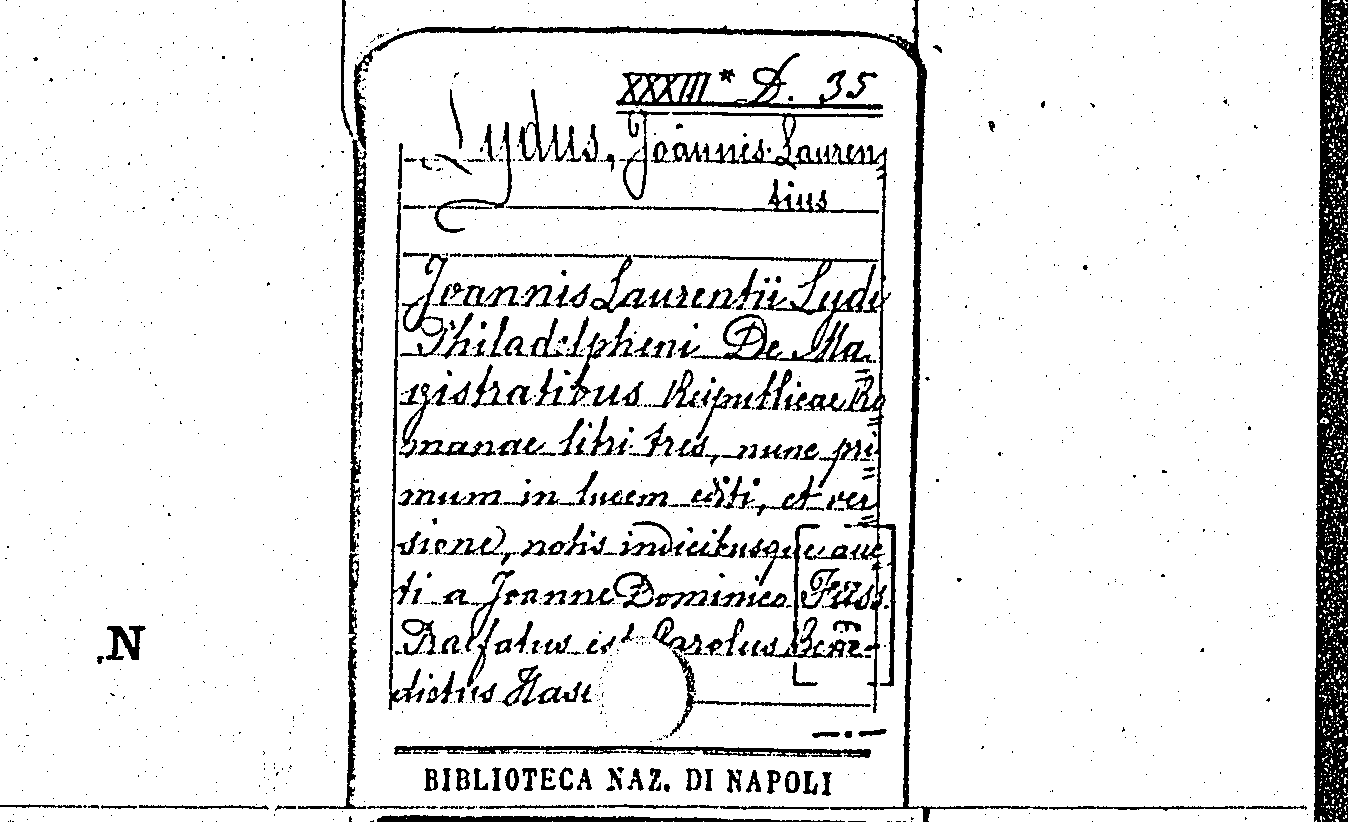 XXXIII* D. 35
Lydus, Joannis Lauren=
tius
Joannis Laurentii Lydi
Philadelpheni De Ma=
gistratibus Reipublicae Ro
manae libri tres, nunc pri=
mum in lucem editi, et ver=
sione, notis indicibusque auc=
ti a Joanne Dominico Füss.
Praefatus est Carolus Bene-
dictus Hase
.N
BIBLIOTECA NAZ. DI NAPOLI